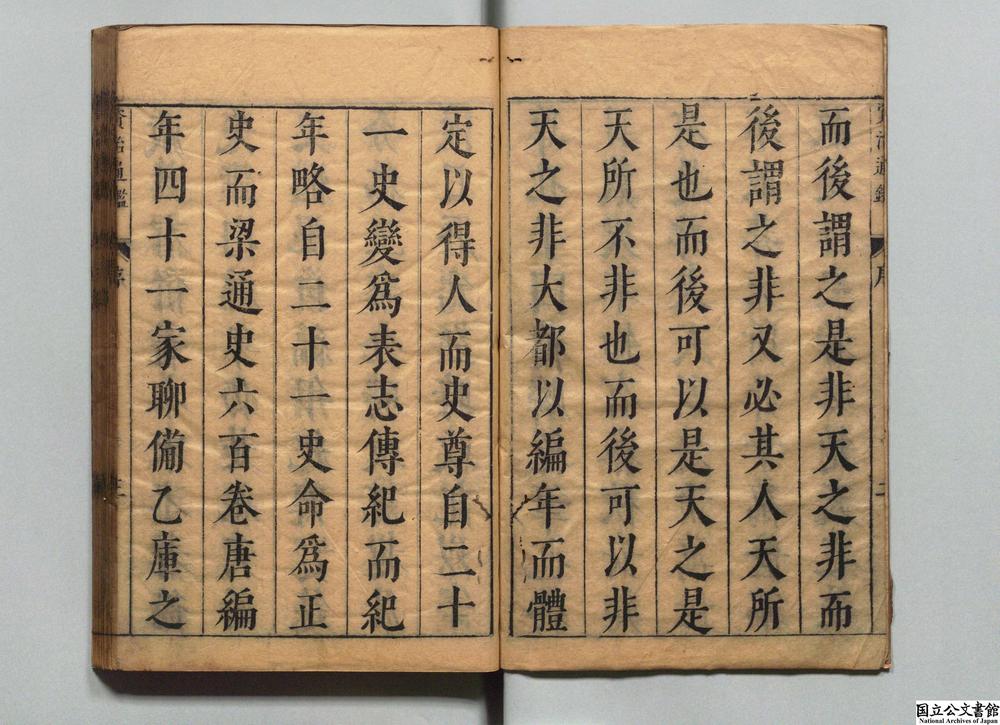 而後謂之是非天之非而
後謂之非又必其人天所
是也而後可以是天之是
天所不非也而後可以非
天之非大都以編年而體
定以得人而史尊自二十
一史變爲表志傳紀而紀
年略自二十一史命爲正
史而梁通史六百卷唐編
年四十一家聊備乙庫之
資治通鑑
序
国立公文書館
National Archives of Japan